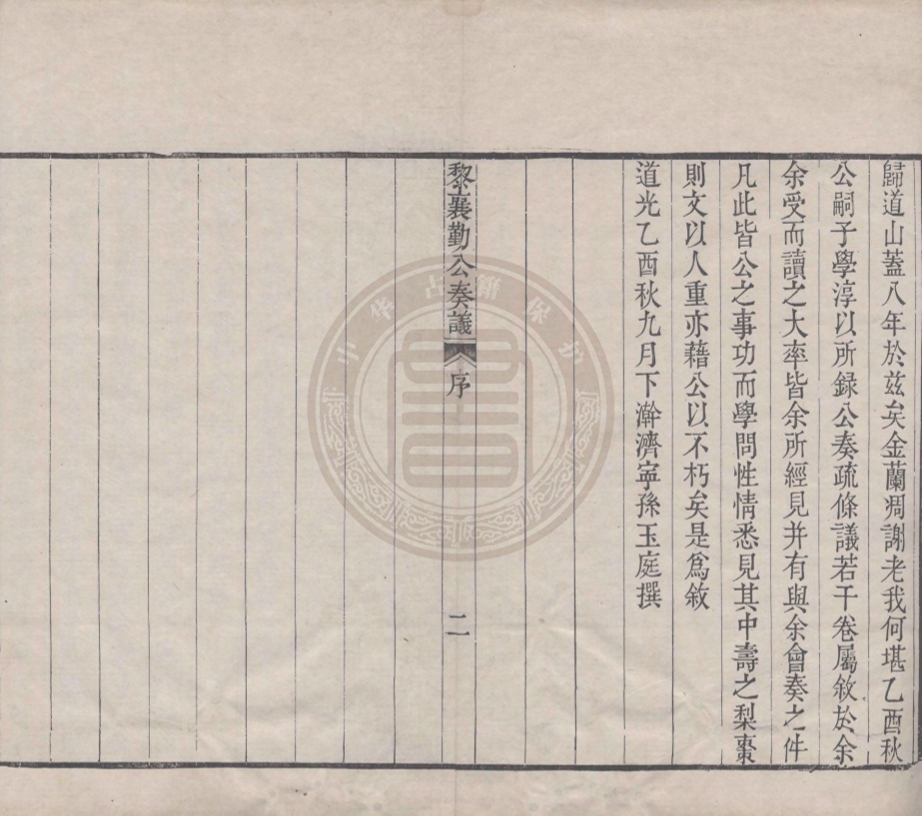 歸道山蓋八年於兹矣金蘭凋謝老我何堪乙酉秋
公嗣子學淳以所録公奏疏條議若干卷屬敘於余
余受而讀之大率皆余所經見并有與余會奏之件
凡此皆公之事功而學問性情悉見其中壽之梨棗
則文以人重亦藉公以不朽矣是爲敘
道光乙酉秋九月下澣濟寧孫玉庭撰
黎襄勤公奏議
序
二
中华古籍保护